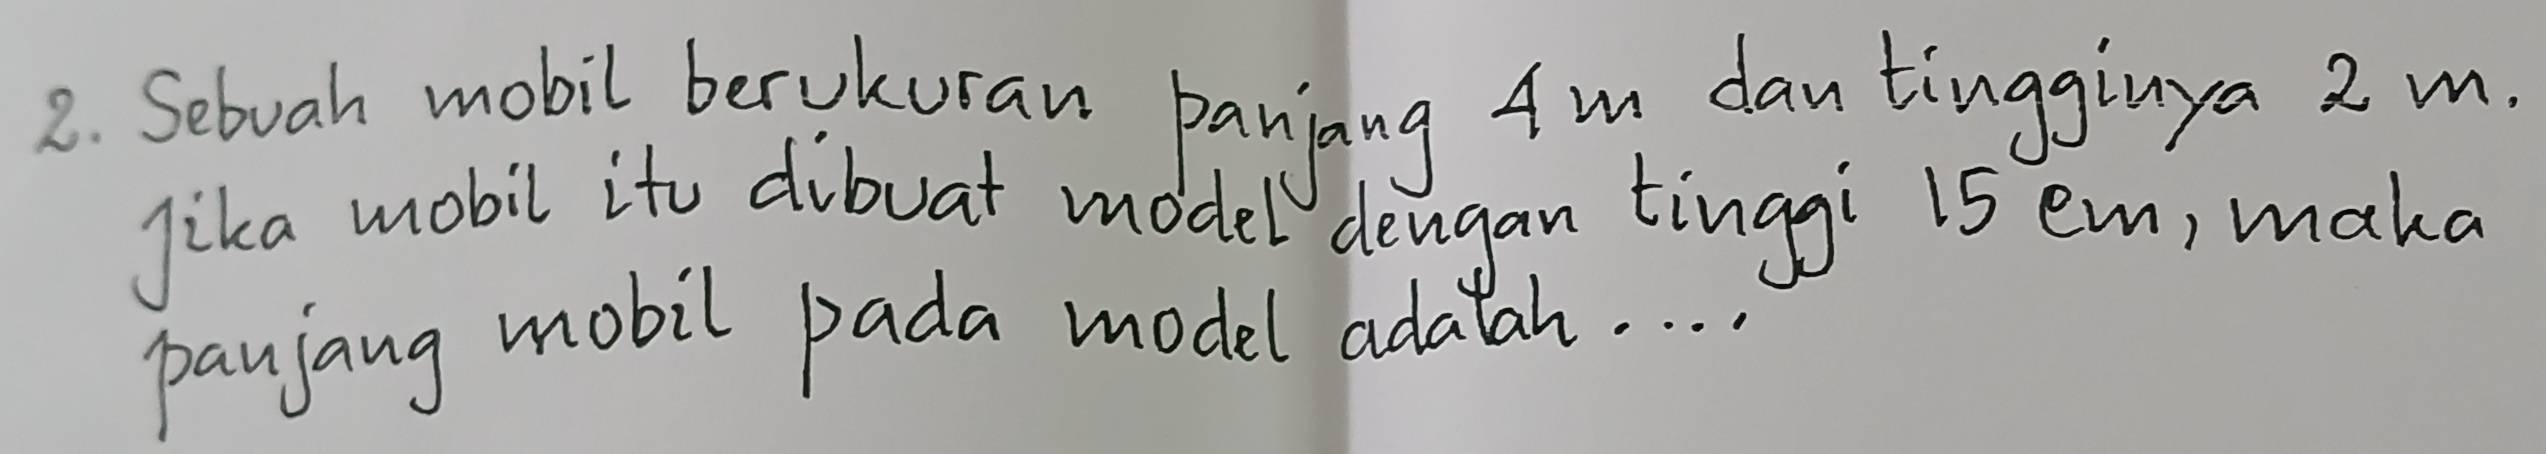 2. Sebuah mobil berukuran panjang 4 m dan tingginya 2 m.
Jika mobil itu dibuat model dengan tinggi 15 cm, maka
panjang mobil pada model adalah....